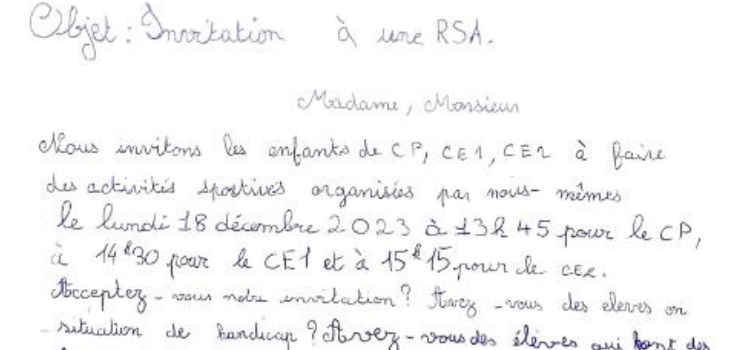 Objet : Invitation à une RSA.
Madame, Monsieur
Nous invitons les enfants de CP, CE1, CE2 à faire
des activités sportives organisées par nous-mêmes
le lundi 18 décembre 2023 à 13h45 pour le CP,
à 14h30 pour le CE1 et à 15h15 pour le CE2.
Acceptez-vous notre invitation ? Avez-vous des élèves en
situation de handicap ? Avez-vous des élèves qui font des